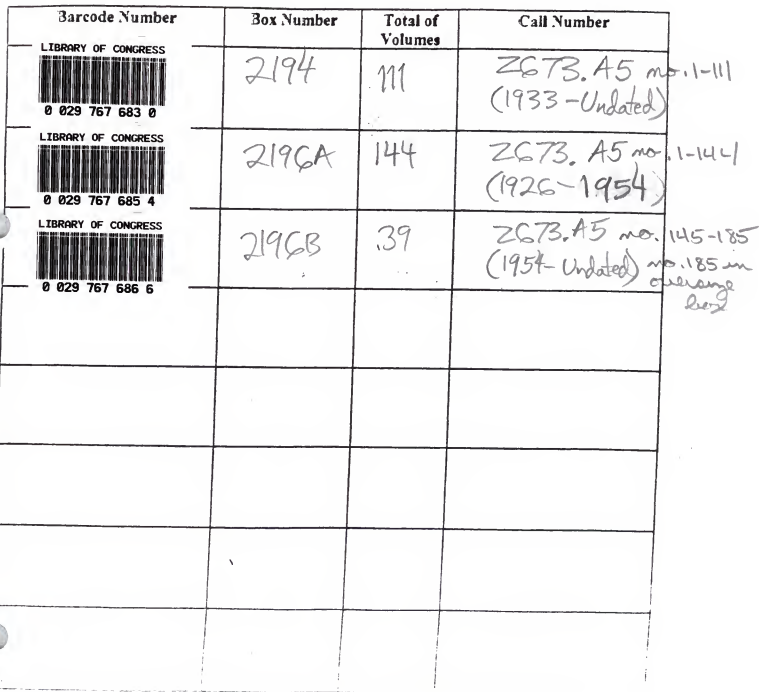 Barcode Number Box Number Total of Volumes Call Number
LIBRARY OF CONGRESS
0 029 767 683 0
2194 111 Z673.A5 no.1-111
(1933-Undated)
LIBRARY OF CONGRESS
0 029 767 685 4
2196A 144 Z673.A5 no.1-144
(1926-1954)
LIBRARY OF CONGRESS
0 029 767 686 6
2196B 39 Z673.A5 no. 145-185
(1954-Undated) no.185 in
oversize
box